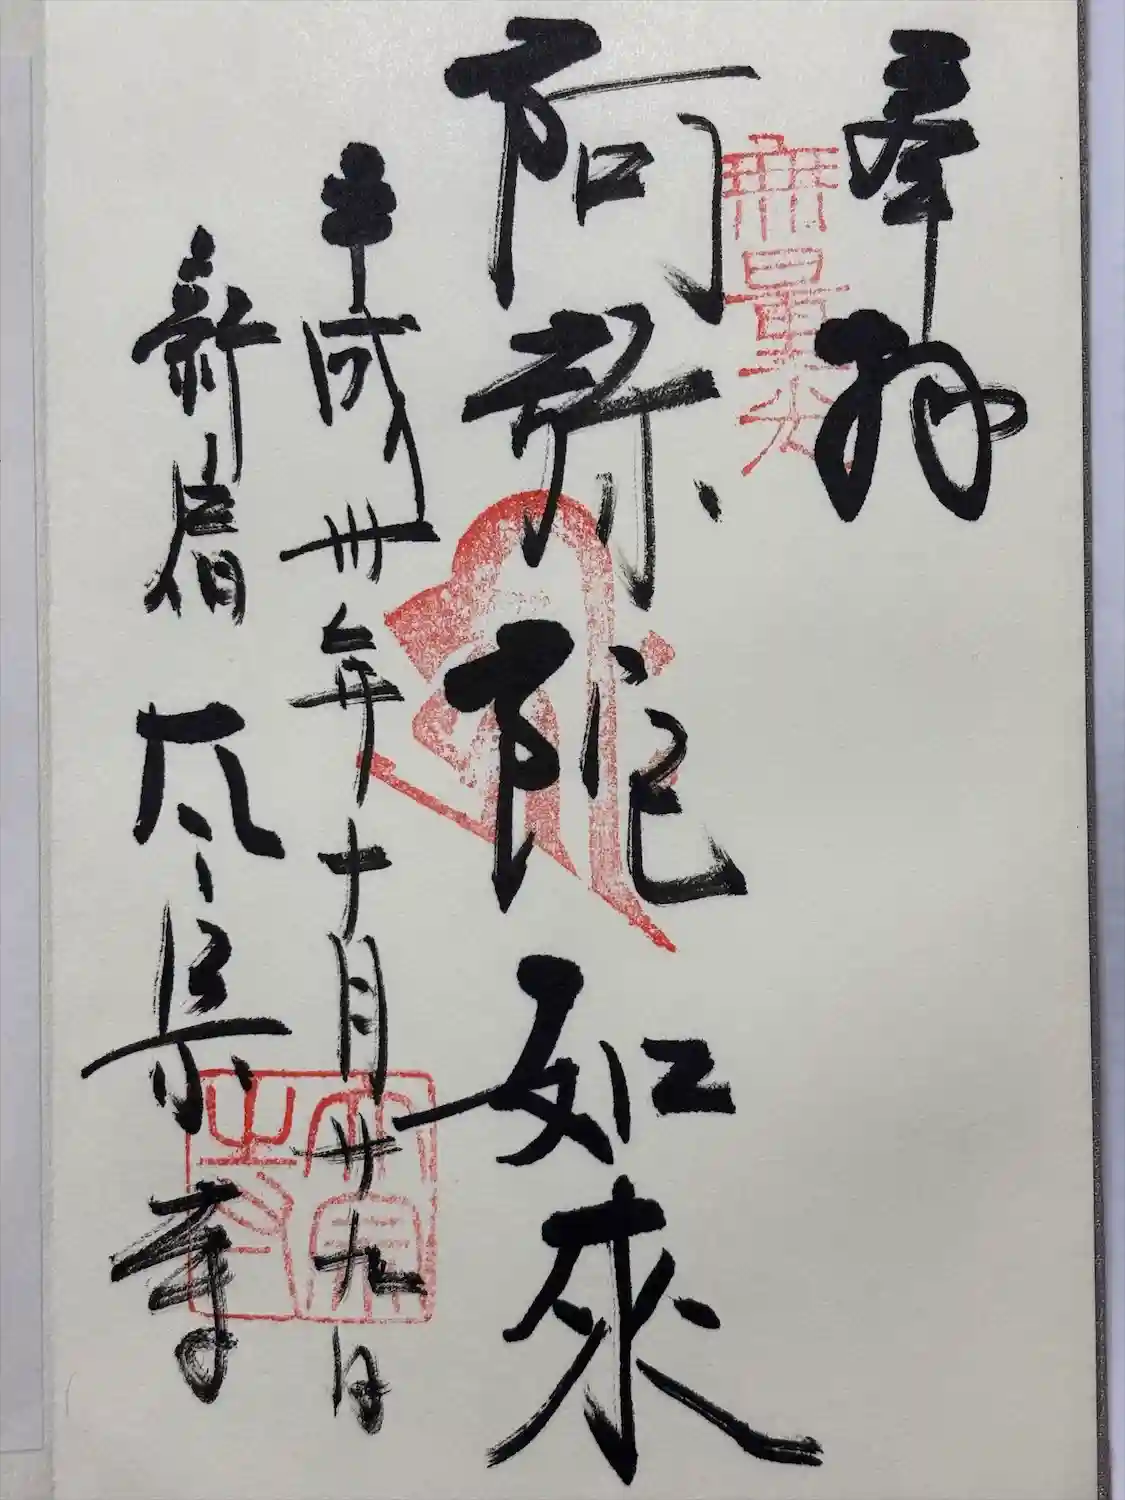 奉拝
無量光
阿弥陀如来
平成卅年十月廿九日
新宿 寺